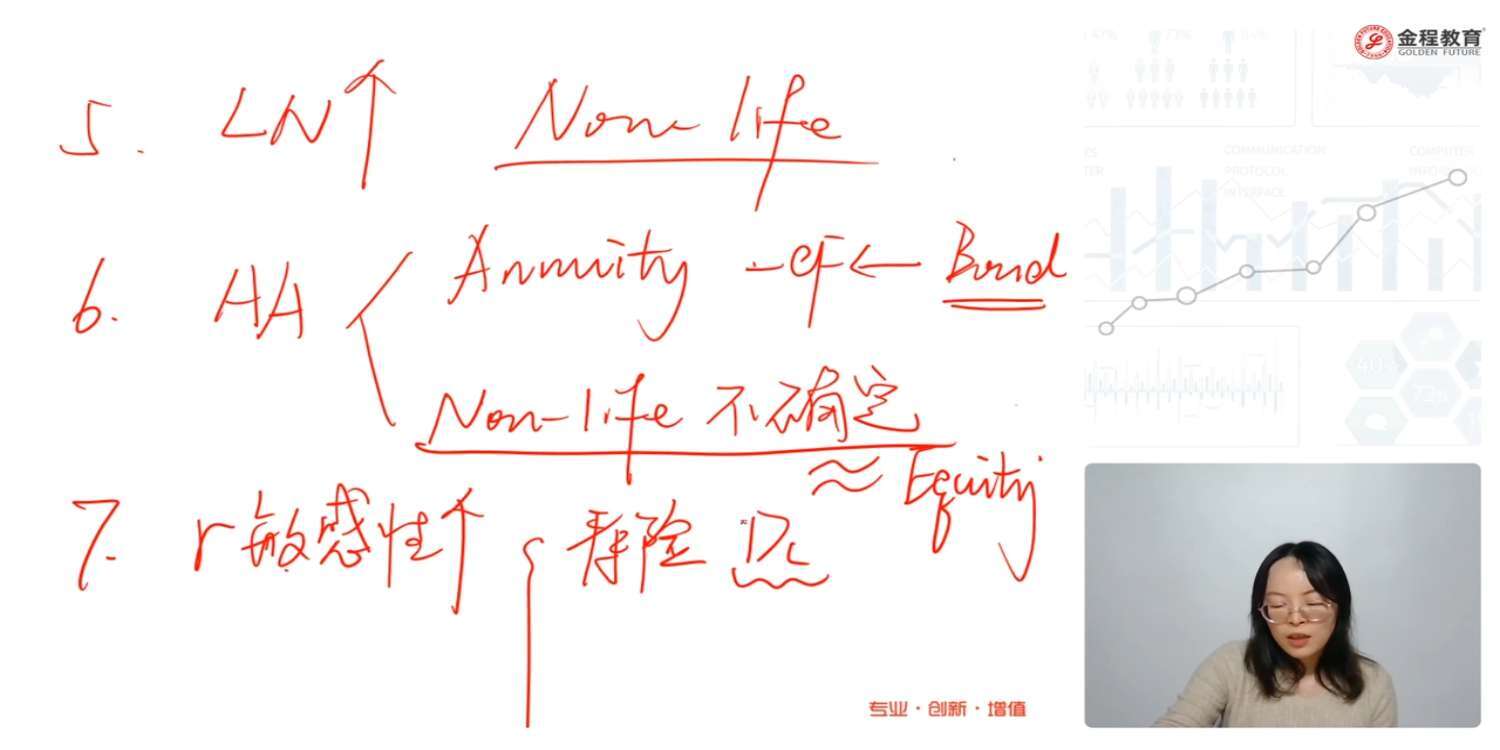 金程教育
GOLDEN FUTURE
5. LN↑ Non-life
6. AA Annuity -CF ← Bond
Non-life 不确定
≈ Equity
7. r敏感性↑ 寿险 DL
COMMUNICATION
PROTOCOL
INTERFACE
COMPUTER
专业·创新·增值